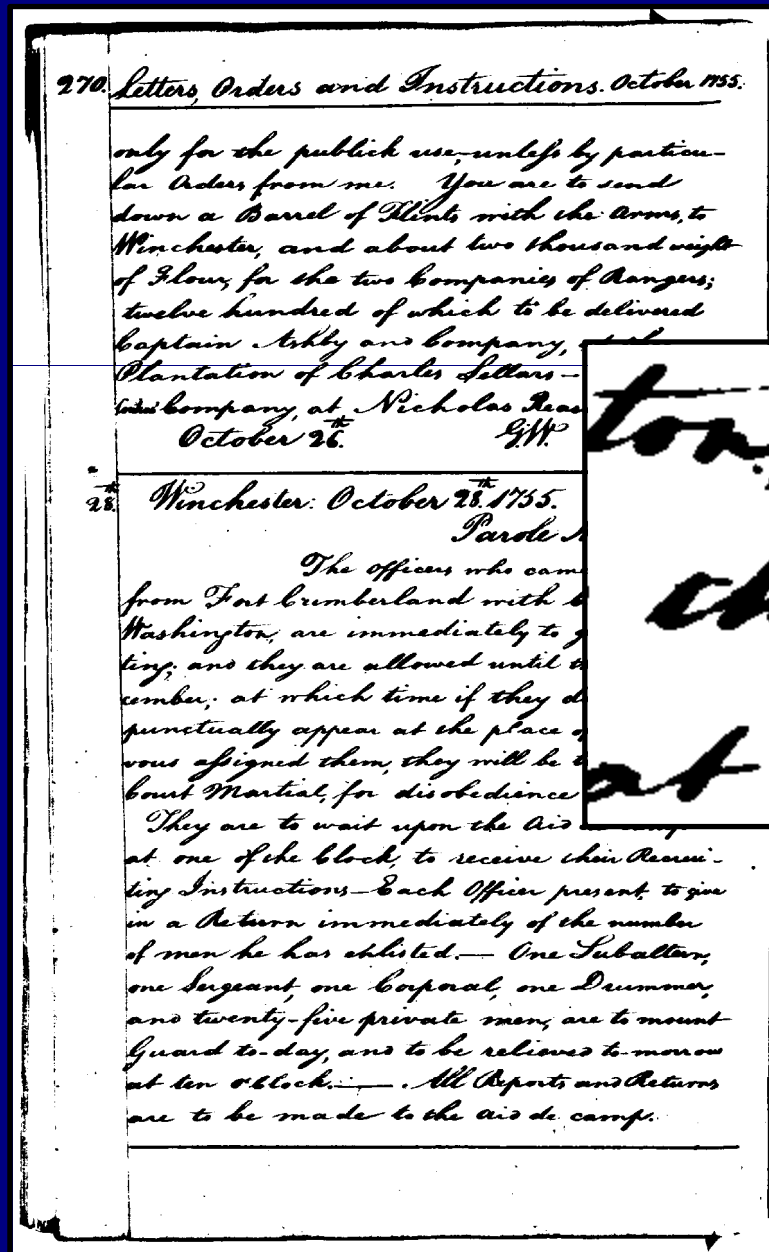 270. Letters, Orders and Instructions. October 1755.
only for the publick use, unless by particu-
lar Orders from me. You are to send
down a Barrel of Flints with the Arms, to
Winchester, and about two thousand weight
of Flour, for the two Companies of Rangers;
twelve hundred of which to be delivered
Captain Ashby and Company,
Plantation of Charles Sellars-
Company, at Nicholas
October 26.th G.W.
28.th Winchester: October 28.th 1755.
Parole
The officers who came
from Fort Cumberland with
Washington, are immediately to
ting; and they are allowed until
cember; at which time if they
punctually appear at the place
vous assigned them, they will be
Court Martial, for disobedience
They are to wait upon the Aid
at one of the Clock, to receive their Recrui-
ting Instructions-Each Officer present, to give
in a Return immediately of the number
of men he has enlisted.— One Subaltern,
one Sergeant, one Corporal, one Drummer,
and twenty-five private men, are to mount
Guard to-day, and to be relieved to-morrow
at ten o'Clock.—. All Reports and Returns
are to be made to the aid de camp.
ton,
at